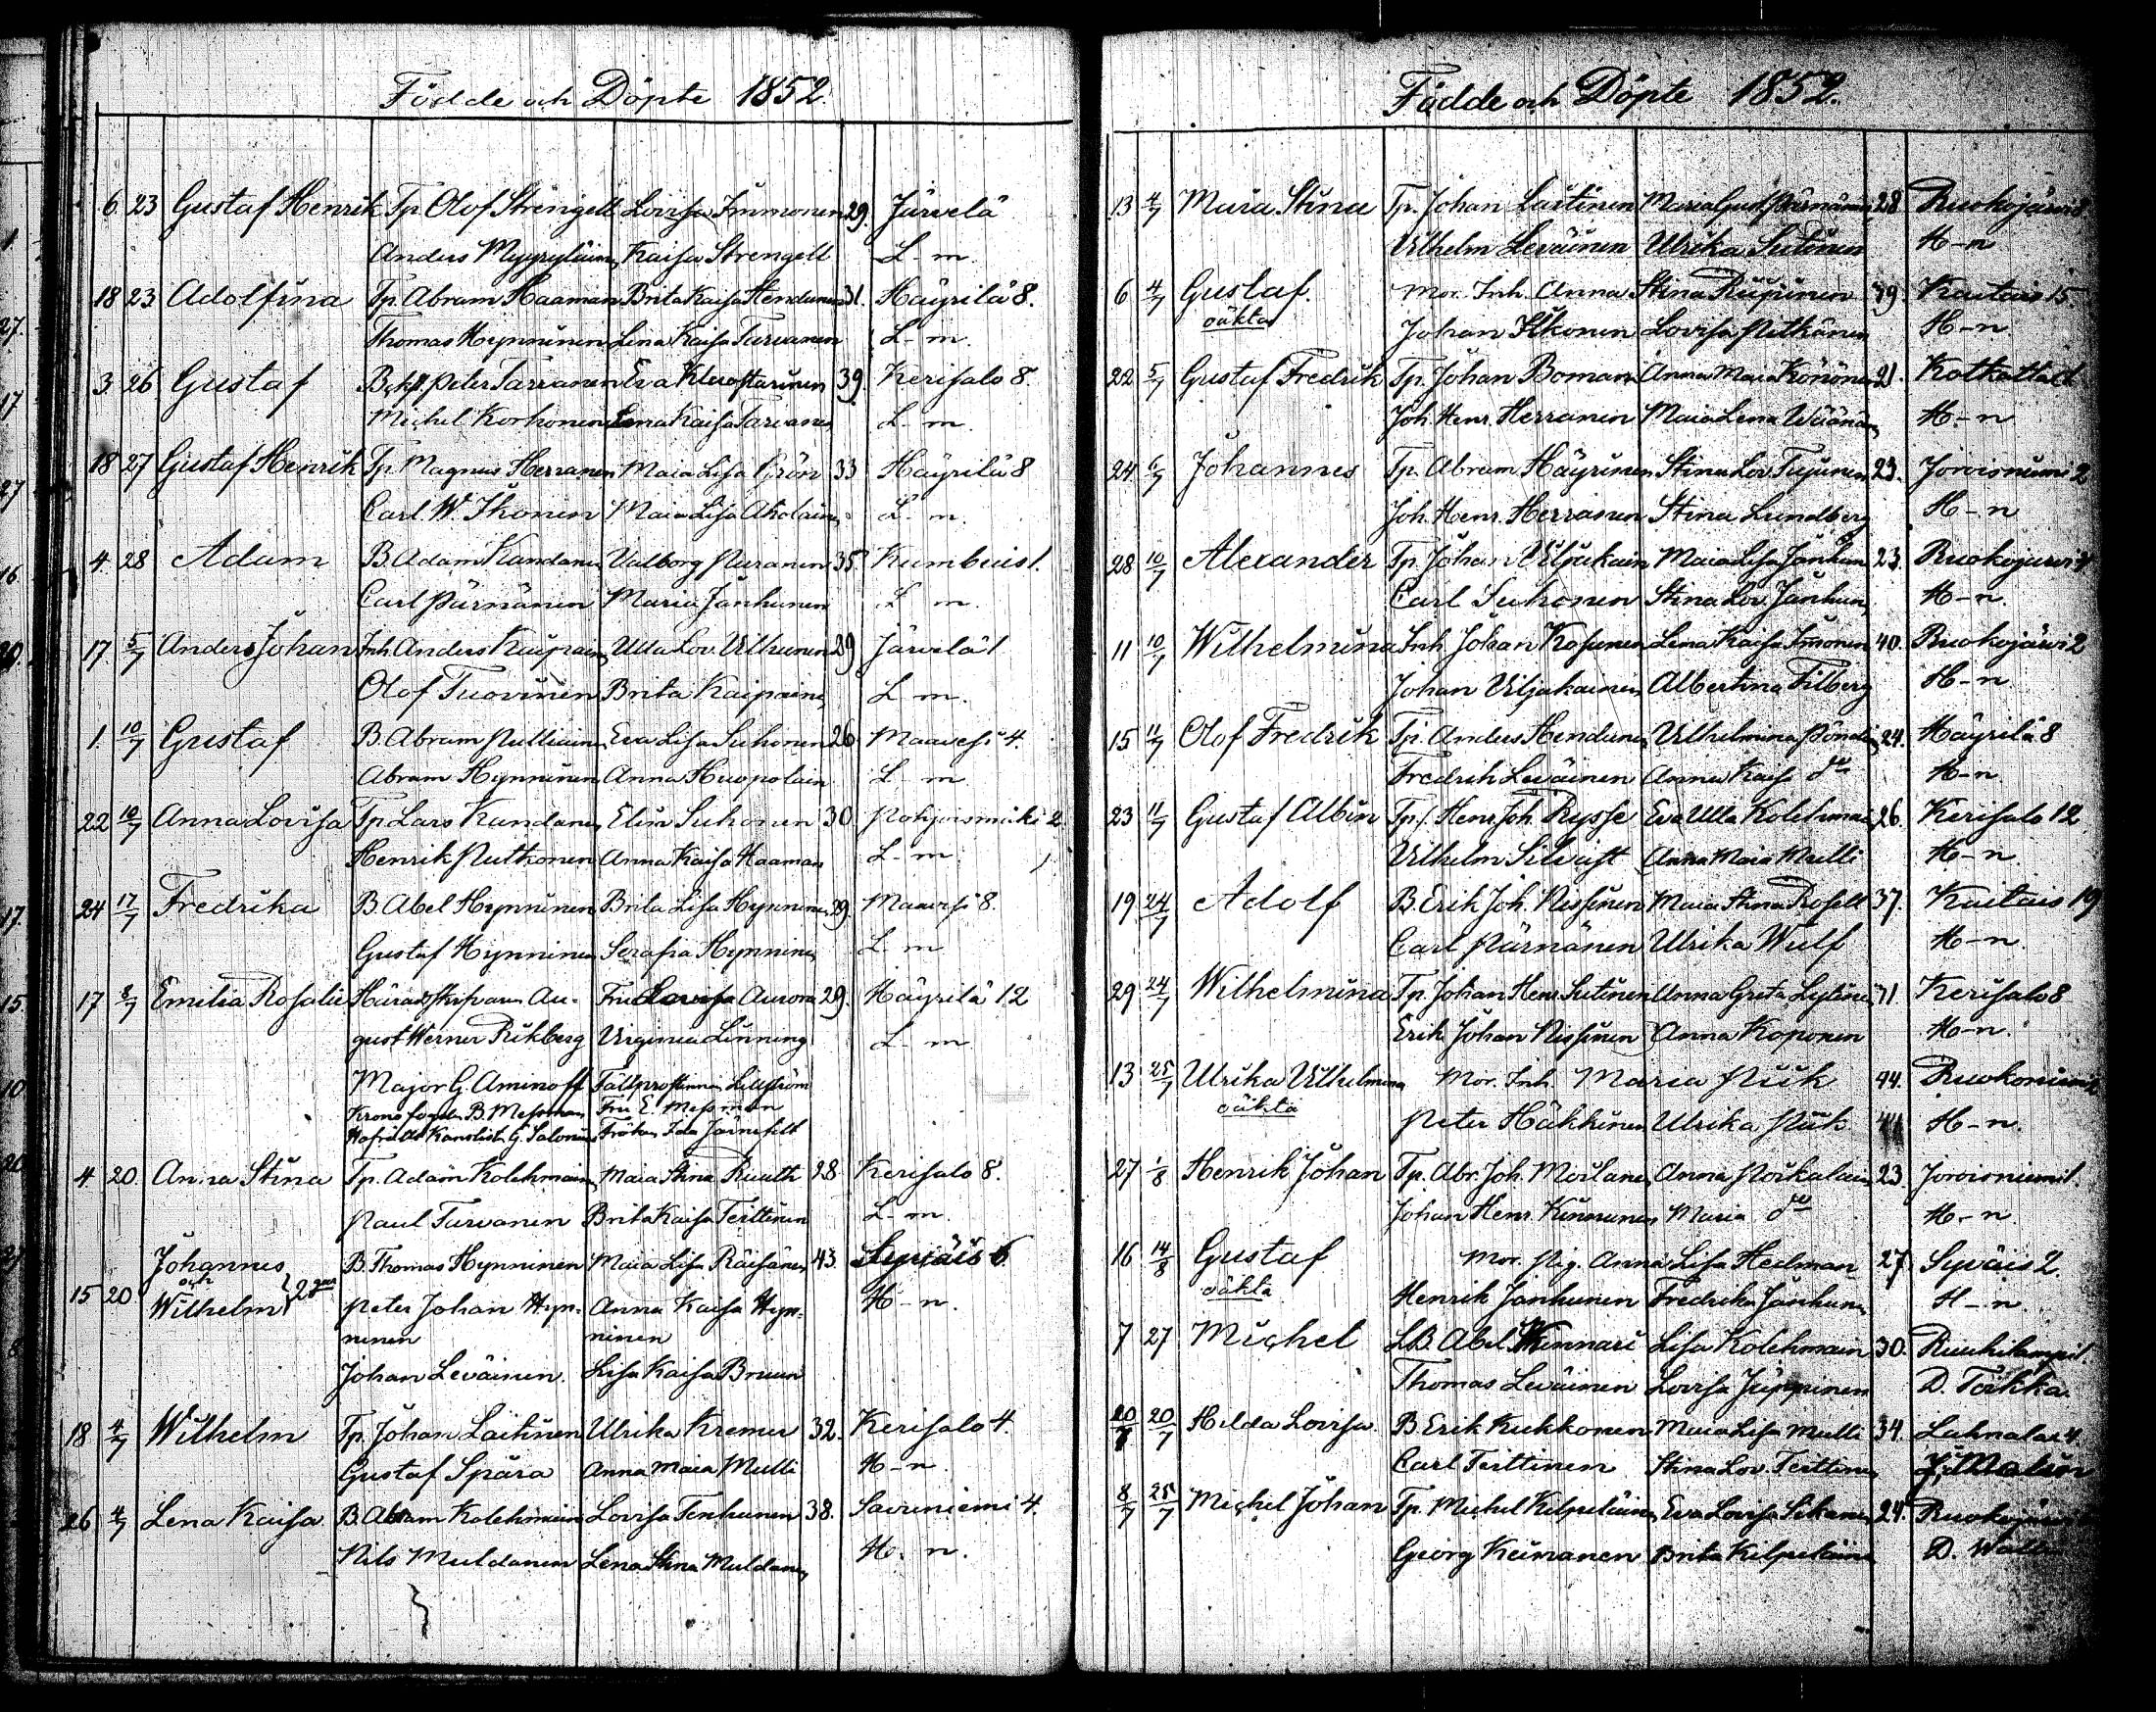 Födde och Döpte 1852.
6 23 Gustaf Henrik Tp. Olof Strengell Lovisa Immonen 29. Järvelä
Anders Myyryläinen Kaisa Strengell L-m.
18 23 Adolfina Tp. Abram Haaman Brita Kaisa Hendunen 31. Häyrilä 8.
Thomas Hynninen Lena Kaisa Turvanen L-m.
3. 26 Gustaf Peter Tarvanen Eva 39. Kerisalo 8.
Michel Korhonen Lena Kaisa Tarvanen L-m.
18 27 Gustaf Henrik Tp. Magnus Herranen Maia Lisa Grön 33 Häyrilä 8
Carl W. Ikonen Maia Lisa Aholainen L-m.
4. 28 Adam B. Adam Kandanen Valborg Puranen 35. Kumbuis 1.
Carl Pärnänen Maria Jänhunen L m.
17. 5/7 Anders Johan Inh. Anders Kaipain Ulla Lov. Vilhunen 29 Järvelä 1
Olof Tuovinen Brita Kaipain L m.
1. 10/7 Gustaf B. Abram Pulliain Eva Lisa Suhonen 26 Maavesi 4.
Abram Hynninen Anna Huopolain L-m
22 10/7 Anna Lovisa Tp. Lars Kandanen Elin Suhonen 30 Pohjoismäki 2
Henrik Putkonen Anna Kaisa Haaman L-m.
24 17/7 Fredrika B. Abel Hynninen Brita Lisa Hynninen 29. Maavesi 8.
Gustaf Hynninen Serafia Hynninen L-m
17 8/7 Emilia Rosalie Häradsskrifvaren Au- Fru Aurora 29. Häyrilä 12
gust Werner Rikberg Virginia Linning L m
Major G. Aminoff Fältprostinnan Lillström
Kronofogden B. Messman Fru E. Messman
Hofrätts Kanslisten G. Salonius Fröken Ida Järnefelt
4. 20. Anna Stina Tp. Adam Kolehmain Maia Stina Ruuth 28 Kerisalo 8.
Paul Turvanen Brita Kaisa Teittinen L-m.
Johannes B. Thomas Hynninen Maia Lisa Räisänen 43. Syväis 6
och
15 20 Wilhelm Peter Johan Hyn- Anna Kaisa Hyn- H-n.
ninen ninen
Johan Leväinen. Lisa Kaisa Bruun
18 4/7 Wilhelm Tp. Johan Laitinen Ulrika Kremer 32. Kerisalo 4.
Gustaf Spåra Anna Maia Mulli H-n.
26 4/7 Lena Kaisa B. Abram Kolehmain Lovisa Tenhunen 38. Savuniemi 4.
Nils Muldanen Lena Stina Muldanen H. n.
Födde och Döpte 1852.
13 4/7 Maia Stina Tp. Johan Laitinen Maria Gust. Pärnänen 28 Ruokojärvi 8
Vilhelm Leväinen Ulrika Suitinen H-n
6 4/7 Gustaf Mor. Inh. Anna Stina Riipinen 39. Kaitais 15
oäkta Johan Ikonen Lovisa Pitkänen H-n
22 5/7 Gustaf Fredrik Tp. Johan Boman Anna Maia Könönen 21. Kotkatlaks
Joh. Henr. Herranen Maia Lena Väänänen H-n
24 6/7 Johannes Tp. Abram Häyrinen Stina Lov. Tujunen 23. Joroisniemi 2
Joh. Henr. Herranen Stina Lundberg H-n
28 10/7 Alexander Tp. Johan Viljakain Maia Lisa Jänhun 23. Ruokojärvi 4
Carl Suhonen Stina Lov. Jänhun H-n.
11 10/7 Wilhelmina Inh. Johan Kosunen Lena Kaisa Imonen 40. Ruokojärvi 2
Johan Viljakainen Albertina Filberg H-n
15 11/7 Olof Fredrik Tp. Anders Hendunen Vilhelmina Pöndin 24. Häyrilä 8
Fredrik Leväinen Anna Kaisa do H-n
23 11/7 Gustaf Albin Tp. Henr. Joh. Rysse Eva Ulla Kolehmain 26. Kerisalo 12
Vilhelm Silvast Anna Maia Mulli H-n.
19 24/7 Adolf B. Erik Joh. Nissinen Maia Stina Rosell 37. Kaitais 19
Carl Pärnänen Ulrika Wulf H-n.
29 24/7 Wilhelmina Tp. Johan Henr. Suitinen Anna Greta Lytinen 31. Kerisalo 8
Erik Johan Nissinen Anna Koponen H-n.
13 25/7 Ulrika Vilhelmina Mor. Inh. Maria Piik 44. Ruokoniemi 2
oäkta Peter Häkkinen Ulrika Piik H-n.
27 1/8 Henrik Johan Tp. Abr. Joh. Moilanen Anna Poikalain 23. Joroisniemi 1.
Johan Henr. Kinnunen Maria do H-n.
16 14/8 Gustaf Mor. Pig. Anna Lisa Hedman 27 Syväis 2.
oäkta Henrik Jänhunen Fredrika Jänhunen H-n
7 27 Michel LB. Abel Kinnari Lisa Kolehmain 30. Ruuhilampi 1.
Thomas Leväinen Lovisa Jäppinen D. Torkka.
20/7 20/7 Hilda Lovisa. B. Erik Kukkonen Maia Lisa Mulli 34. Lahnalax 4.
Carl Teittinen Stina Lov. Teittinen J. Malin
8/7 25/7 Michel Johan Tp. Michel Kilpeläinen Eva Lovisa Sikanen 24. Ruokojärvi
Georg Keinanen Brita Kilpeläinen D.